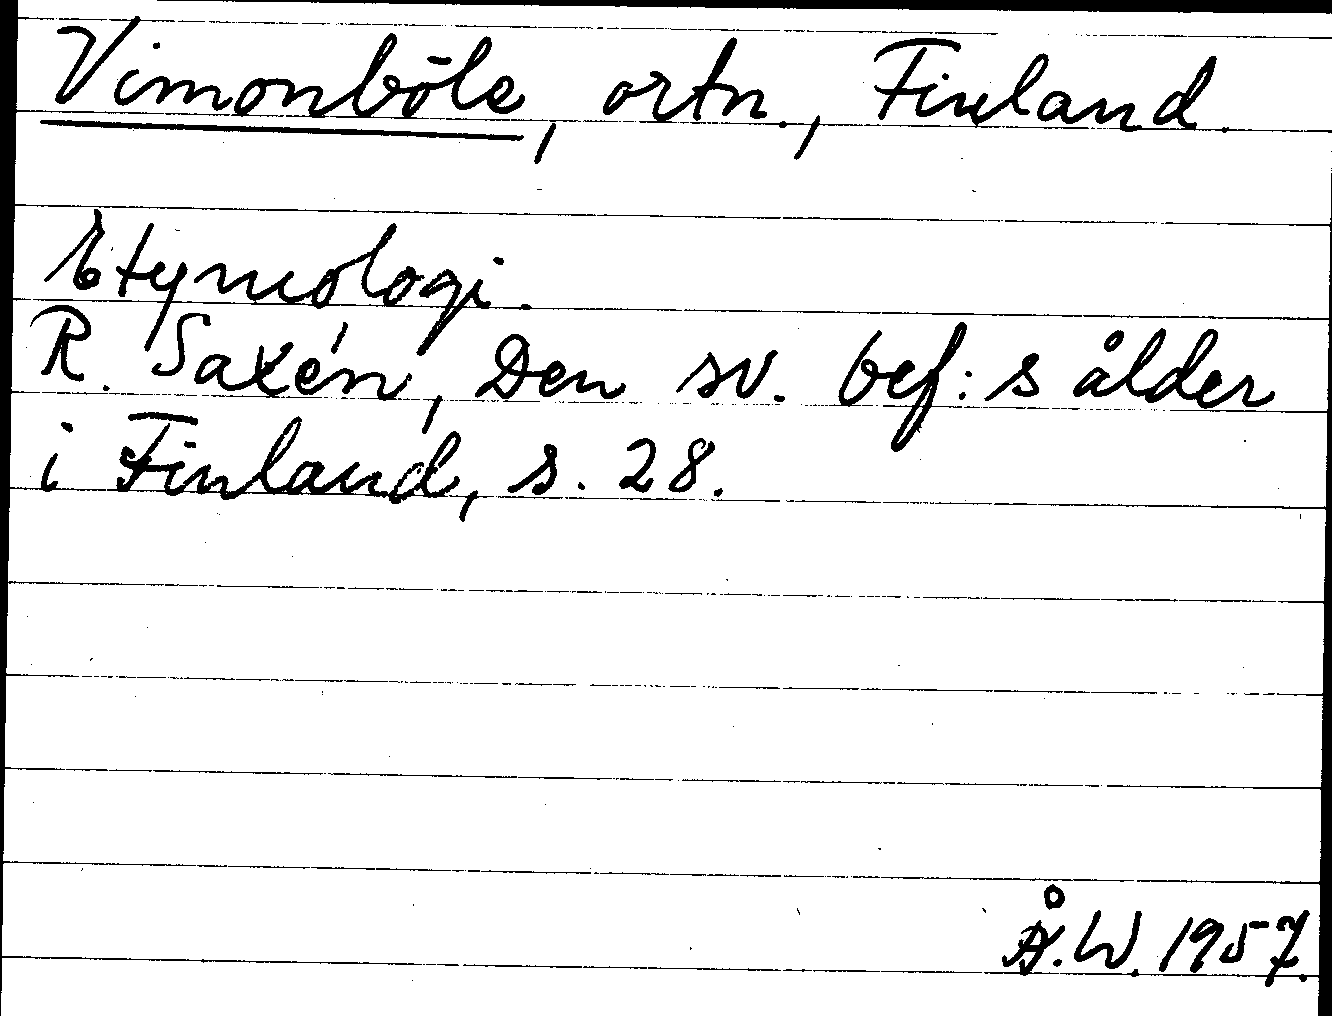 Vimonböle, ortn., Finland.
Etymologi.
R. Saxén, Den sv. bef:s ålder
i Finland, s. 28.
Å.W. 1957.